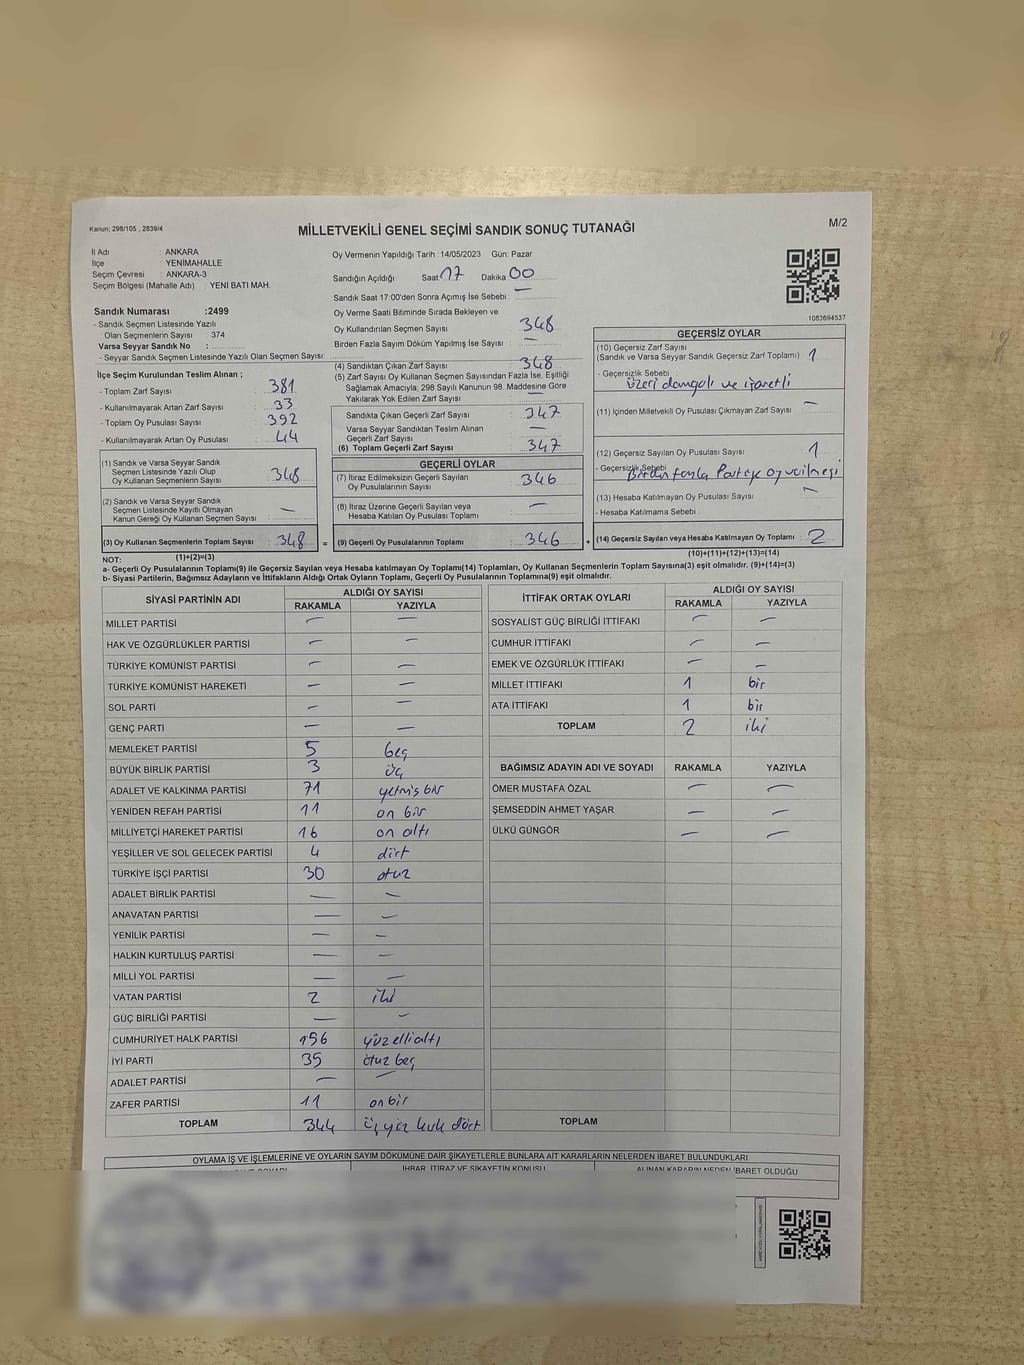 Kanun: 298/105 , 2839/4
MİLLETVEKİLİ GENEL SEÇİMİ SANDIK SONUÇ TUTANAĞI
M/2
İl Adı : ANKARA
İlçe : YENİMAHALLE
Seçim Çevresi : ANKARA-3
Seçim Bölgesi (Mahalle Adı) : YENİ BATI MAH.
Oy Vermenin Yapıldığı Tarih :14/05/2023 Gün: Pazar
Sandığın Açıldığı Saat 17 Dakika 00
Sandık Saat 17:00'den Sonra Açımış İse Sebebi : —
Oy Verme Saati Bitiminde Sırada Bekleyen ve
Oy Kullandırılan Seçmen Sayısı 348
Birden Fazla Sayım Döküm Yapılmış İse Sayısı : —
1083694537
Sandık Numarası :2499
- Sandık Seçmen Listesinde Yazılı
Olan Seçmenlerin Sayısı 374
Varsa Seyyar Sandık No :
- Seyyar Sandık Seçmen Listesinde Yazılı Olan Seçmen Sayısı:
İlçe Seçim Kurulundan Teslim Alınan ;
- Toplam Zarf Sayısı : 381
- Kullanılmayarak Artan Zarf Sayısı : 33
- Toplam Oy Pusulası Sayısı : 392
- Kullanılmayarak Artan Oy Pusulası : 44
(1) Sandık ve Varsa Seyyar Sandık
Seçmen Listesinde Yazılı Olup
Oy Kullanan Seçmenlerin Sayısı : 348
(2) Sandık ve Varsa Seyyar Sandık
Seçmen Listesinde Kayıtlı Olmayan
Kanun Gereği Oy Kullanan Seçmen Sayısı : —
(3) Oy Kullanan Seçmenlerin Toplam Sayısı : 348 =
(1)+(2)=(3)
(4) Sandıktan Çıkan Zarf Sayısı : 348
(5) Zarf Sayısı Oy Kullanan Seçmen Sayısından Fazla İse, Eşitliği
Sağlamak Amacıyla, 298 Sayılı Kanunun 98. Maddesine Göre
Yakılarak Yok Edilen Zarf Sayısı : —
Sandıkta Çıkan Geçerli Zarf Sayısı : 347
Varsa Seyyar Sandıktan Teslim Alınan
Geçerli Zarf Sayısı : —
(6) Toplam Geçerli Zarf Sayısı : 347
GEÇERLİ OYLAR
(7) İtiraz Edilmeksizin Geçerli Sayılan
Oy Pusulalarının Sayısı : 346
(8) İtiraz Üzerine Geçerli Sayılan veya
Hesaba Katılan Oy Pusulası Toplamı : —
(9) Geçerli Oy Pusulalarının Toplamı : 346 +
GEÇERSİZ OYLAR
(10) Geçersiz Zarf Sayısı
(Sandık ve Varsa Seyyar Sandık Geçersiz Zarf Toplamı) : 1
- Geçersizlik Sebebi :
Üzeri damgalı ve işaretli
(11) İçinden Milletvekili Oy Pusulası Çıkmayan Zarf Sayısı : —
(12) Geçersiz Sayılan Oy Pusulası Sayısı : 1
- Geçersizlik Sebebi
Birden fazla Partiye oy verilmesi
(13) Hesaba Katılmayan Oy Pusulası Sayısı : —
- Hesaba Katılmama Sebebi
(14) Geçersiz Sayılan veya Hesaba Katılmayan Oy Toplamı : 2
(10)+(11)+(12)+(13)=(14)
NOT:
a- Geçerli Oy Pusulalarının Toplamı(9) ile Geçersiz Sayılan veya Hesaba katılmayan Oy Toplamı(14) Toplamları, Oy Kullanan Seçmenlerin Toplam Sayısına(3) eşit olmalıdır. (9)+(14)=(3)
b- Siyasi Partilerin, Bağımsız Adayların ve İttifakların Aldığı Ortak Oyların Toplamı, Geçerli Oy Pusulalarının Toplamına(9) eşit olmalıdır.
SİYASİ PARTİNİN ADI ALDIĞI OY SAYISI
RAKAMLA YAZIYLA
MİLLET PARTİSİ — —
HAK VE ÖZGÜRLÜKLER PARTİSİ — —
TÜRKİYE KOMÜNİST PARTİSİ — —
TÜRKİYE KOMÜNİST HAREKETİ — —
SOL PARTİ — —
GENÇ PARTİ — —
MEMLEKET PARTİSİ 5 beş
BÜYÜK BİRLİK PARTİSİ 3 üç
ADALET VE KALKINMA PARTİSİ 71 yetmiş bir
YENİDEN REFAH PARTİSİ 11 on bir
MİLLİYETÇİ HAREKET PARTİSİ 16 on altı
YEŞİLLER VE SOL GELECEK PARTİSİ 4 dört
TÜRKİYE İŞÇİ PARTİSİ 30 otuz
ADALET BİRLİK PARTİSİ — —
ANAVATAN PARTİSİ — —
YENİLİK PARTİSİ — —
HALKIN KURTULUŞ PARTİSİ — —
MİLLİ YOL PARTİSİ — —
VATAN PARTİSİ 2 iki
GÜÇ BİRLİĞİ PARTİSİ — —
CUMHURİYET HALK PARTİSİ 156 yüz elli altı
İYİ PARTİ 35 otuz beş
ADALET PARTİSİ — —
ZAFER PARTİSİ 11 on bir
TOPLAM 344 üç yüz kırk dört
İTTİFAK ORTAK OYLARI ALDIĞI OY SAYISI
RAKAMLA YAZIYLA
SOSYALİST GÜÇ BİRLİĞİ İTTİFAKI — —
CUMHUR İTTİFAKI — —
EMEK VE ÖZGÜRLÜK İTTİFAKI — —
MİLLET İTTİFAKI 1 bir
ATA İTTİFAKI 1 bir
TOPLAM 2 iki
BAĞIMSIZ ADAYIN ADI VE SOYADI RAKAMLA YAZIYLA
ÖMER MUSTAFA ÖZAL — —
ŞEMSEDDİN AHMET YAŞAR — —
ÜLKÜ GÜNGÖR — —
TOPLAM
OYLAMA İŞ VE İŞLEMLERİNE VE OYLARIN SAYIM DÖKÜMÜNE DAİR ŞİKAYETLERLE BUNLARA AİT KARARLARIN NELERDEN İBARET BULUNDUKLARI
İHBAR, İTİRAZ VE ŞİKAYETİN KONUSU
ALINAN KARARIN NEDEN İBARET OLDUĞU